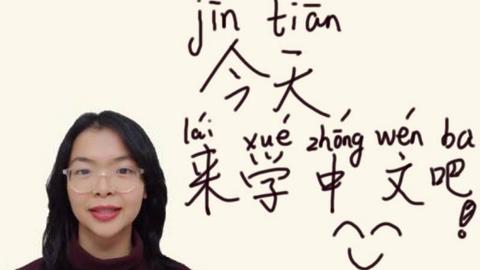 jīn tiān
今天
lái xué zhōng wén ba
来学中文吧!